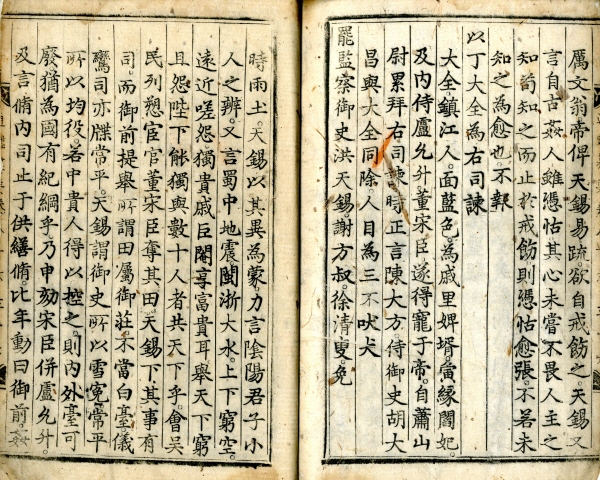 厲文翁帝俾天錫易疏欲自戒飭之天錫又
言自古姦人雖憑怙其心未嘗不畏人主之
知苟知之而止於戒飭則憑怙愈張不若未
知之為愈也不報
以丁大全為右司諫
大全鎮江人面藍色為戚里婢壻夤緣閻妃
及內侍盧允升董宋臣遂得寵于帝自蕭山
尉累拜右司諫時正言陳大方侍御史胡大
昌與大全同除人目為三不吠犬
罷監察御史洪天錫謝方叔徐清叟免
時雨土天錫以其異為蒙力言陰陽君子小
人之辨又言蜀中地震閩浙大水上下窮空
遠近嗟怨獨貴戚巨閹享富貴耳舉天下窮
且怨陛下能獨與數十人者共天下乎會吳
民列愬宦官董宋臣奪其田天錫下其事有
司而御前提舉所謂田屬御莊不當白臺儀
鸞司亦牒常平天錫謂御史所以雪冤常平
所以均役若中貴人得以控之則內外臺可
廢猶為國有紀綱乎乃申劾宋臣併盧允升
及言脩內司止于供繕脩比年動曰御前姦